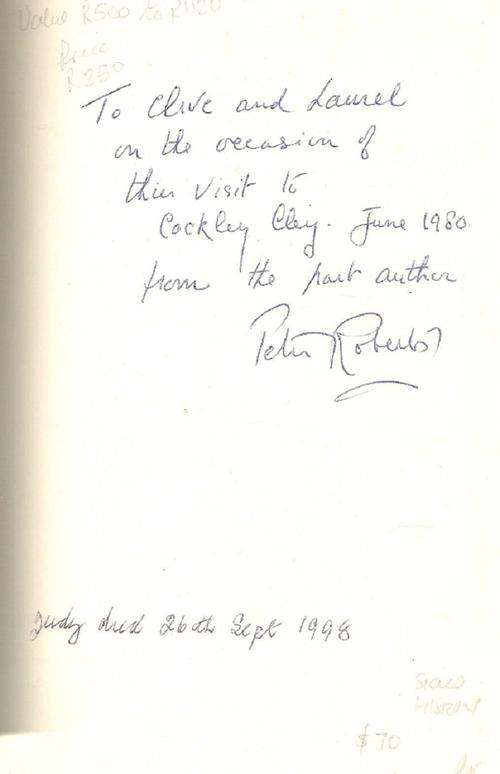 Value R500 to R1120
Price
R250
To Clive and Laurel
on the occasion of
their visit to
Cockley Cley. June 1980
from the part author
Peter Roberts
Judy died 26th Sept 1998
$70